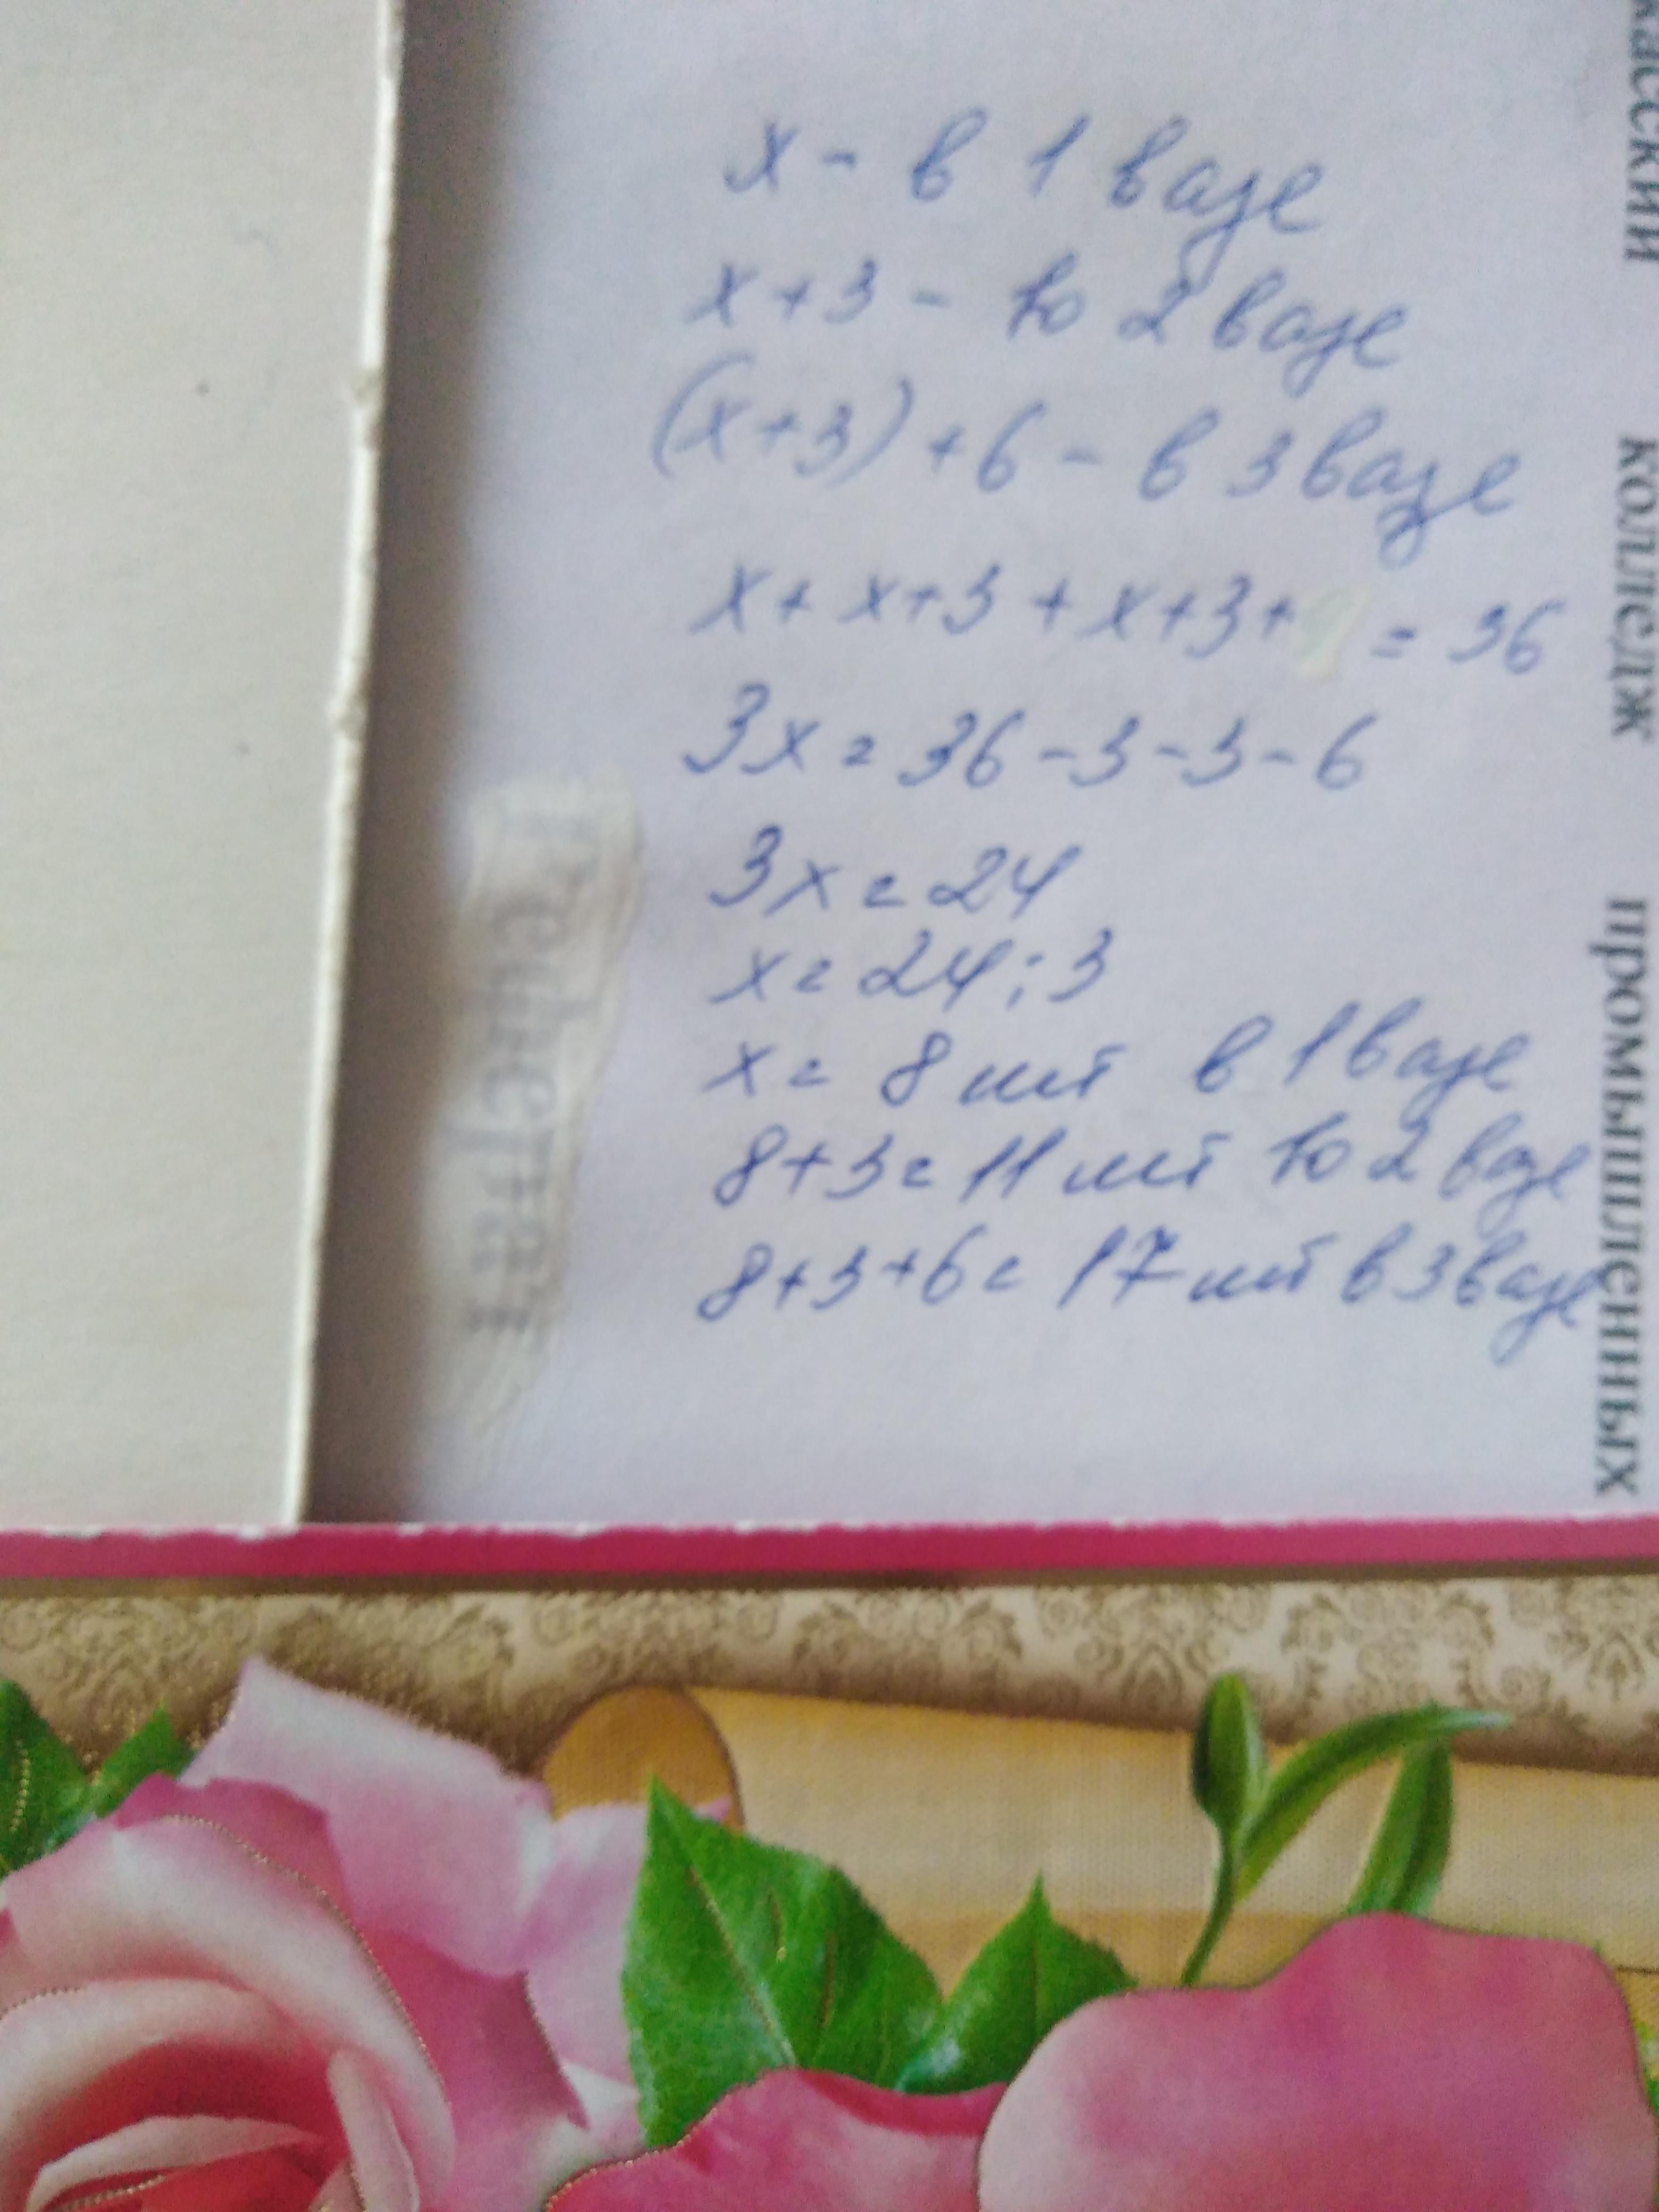 x - в 1 вазе
x+3 - во 2 вазе
(x+3)+6 - в 3 вазе
x+x+3+x+3+ = 36
3x = 36-3-3-6
3x = 24
x = 24:3
x = 8 шт в 1 вазе
8+3 = 11 шт во 2 вазе
8+3+6 = 17 шт в 3 вазе
Реферат
колледж
промышленных